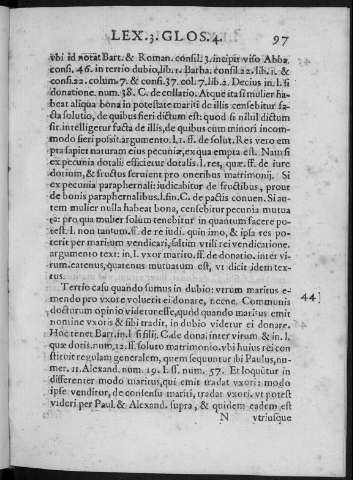 LEX. 3. GLOS. 4. 97
vbi id notat Bart. & Roman. consil. 3. incipit viso Abba.
consi. 46. in tertio dubio, lib. 1. Barba. consil. 22. lib. 1. &
consi. 22. colum. 7. & consi. 37. col. 7. lib. 2. Decius in. l. si
donatione. num. 38. C. de collatio. Atque ita si mulier ha-
beat aliqua bona in potestate mariti de illis censebitur fa-
cta solutio, de quibus fieri dictum est: quod si nihil dictum
sit. intelligetur facta de illis, de quibus cum minori incom-
modo fieri possit. argumento. l. 1. ff. de solut. Res vero em
pta sapiet naturam eius pecuniæ, ex qua empta est. Nam si
ex pecunia dotali efficietur dotalis. l. res, quæ. ff. de iure
dotium, & fructus seruient pro oneribus matrimonij. Si
ex pecunia paraphernali: iudicabitur de fructibus, prout
de bonis paraphernalibus. l. fin. C. de pactis conuen. Si au-
tem mulier nulla habeat bona, censebitur pecunia mutua
ta: pro qua mulier solum tenebitur in quantum facere po-
test. l. non tantum. ff. de re iudi. quin imo, & ipsa res po-
terit per maritum vendicari, saltim vtili rei vendicatione.
argumento text: in. l. vxor marito. ff. de donatio. inter vi-
rum. eatenus, quatenus mutuatum est, vt dicit idem tex-
tus.
Tertio casu quando sumus in dubio: vtrum maritus e-
mendo pro vxore voluerit ei donare, necne. Communis 44]
doctorum opinio videtur esse, quod quando maritus emit
nomine vxoris & sibi tradit, in dubio videtur ei donare.
Hoc tenet Bart. in. l. si filij. C. de dona. inter virum & in. l.
quæ dotis. num. 12. ff. soluto matrimonio. vbi huius rei con
stituit regulam generalem, quem sequuntur ibi Paulus, nu-
mer. 11. Alexand. num. 19. l. ff. num. 57. Et loquitur in
differenter modo maritus, qui emit tradat vxori: modo
ipse venditur, de consensu mariti, tradat vxori. vt potest
videri per Paul. & Alexand. supra, & quidem eadem est
N vtriusque